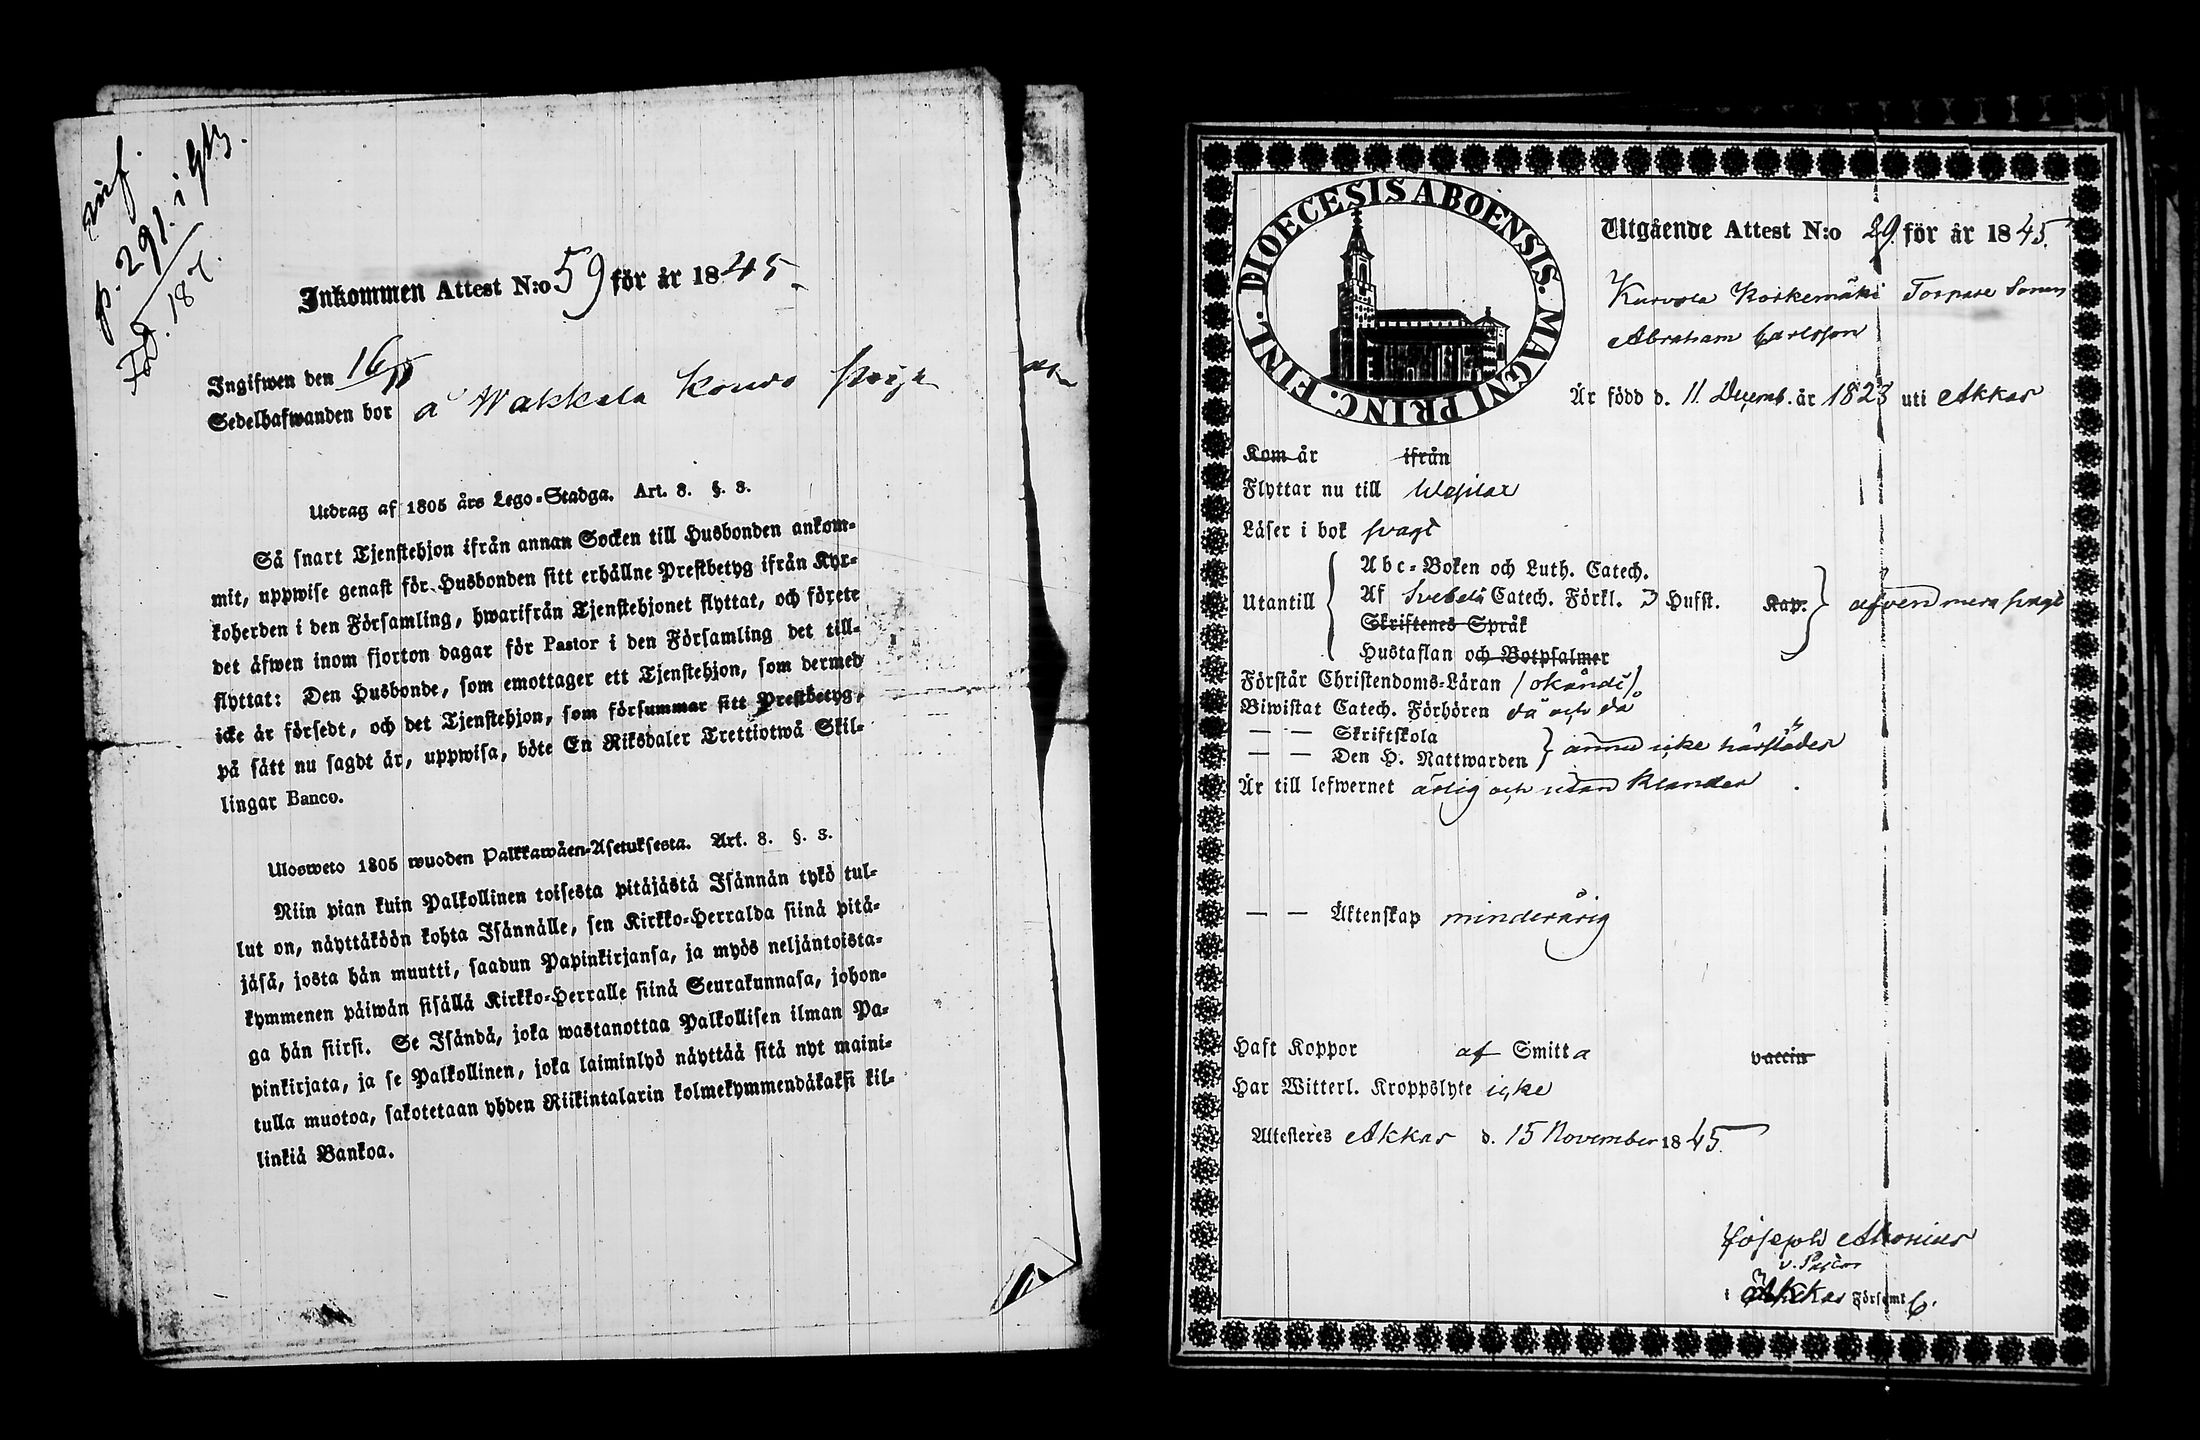 inf.
p. 291. i
Fd. 18
Inkommen Attest N:o 59 för år 1845.
Ingifwen den 16/11
Sedelhafwanden bor å Wakkala Kouvo
Utdrag af 1805 års Lego-Stadga. Art. 8. §. 3.
Så snart Tjenstehjon ifrån annan Socken till Husbonden ankom-
mit, uppwise genast för Husbonden sitt erhållne Prestbetyg ifrån Kyr-
koherden i den Församling, hwarifrån Tjenstehjonet flyttat, och förete
det äfwen inom fjorton dagar för Pastor i den Församling det till-
flyttat: Den Husbonde, som emottager ett Tjenstehjon, som dermed
icke är försedt, och det Tjenstehjon, som försummar sitt Prestbetyg,
på sätt nu sagdt är, uppwisa, böte En Riksdaler Trettiotwå Skil-
lingar Banco.
Ulosweto 1805 wuoden Palkkawäen-Asetuksesta. Art. 8. §. 3.
Niin pian kuin Palkollinen toisesta pitäjästä Isännän tykö tul-
lut on, näyttäköön kohta Isännälle, sen Kirkko-Herralda siinä pitä-
jäsä, josta hän muutti, saadun Papinkirjansa, ja myös neljäntoista-
kymmenen päiwän sisällä Kirkko-Herralle siinä Seurakunnasa, johon-
ga hän siirsi. Se Isändä, joka wastanottaa Palkollisen ilman Pa-
pinkirjata, ja se Palkollinen, joka laiminlyö näyttää sitä nyt maini-
tulla muotoa, sakotetaan yhden Riikintalarin kolmekymmendäkaksi kil-
linkiä Bankoa.
DIOECESIS ABOENSIS. MAGNI PRINC. FINL.
Utgående Attest N:o 29. för år 1845.
Kurvola Koskemäki Torpare Sonen
Abraham Carlsson
Är född d. 11 Decemb. år 1823 uti Akkas
Kom år ifrån
Flyttar nu till Wesilax
Läser i bok svagt
Abc-Boken och Luth. Catech.
Utantill Af Svebeli Catech. Förkl. 3 Hufst. Kap. äfven mera svagt
Skriftenes Språk
Hustaflan och Botpsalmer
Förstår Christendoms-Läran /okändt/
Biwistat Catech. Förhören då och då
— — Skriftskola
— — Den H. Nattwarden ännu icke härstädes
Är till lefwernet ärlig och utan klander
— — Äktenskap minderårig
Haft Koppor af Smitta vaccin
Har Witterl. Kroppslyte icke
Attesteres Akkas d. 15 November 1845.
Joseph Monius
v. Pastor
i Akkas Församl 6.